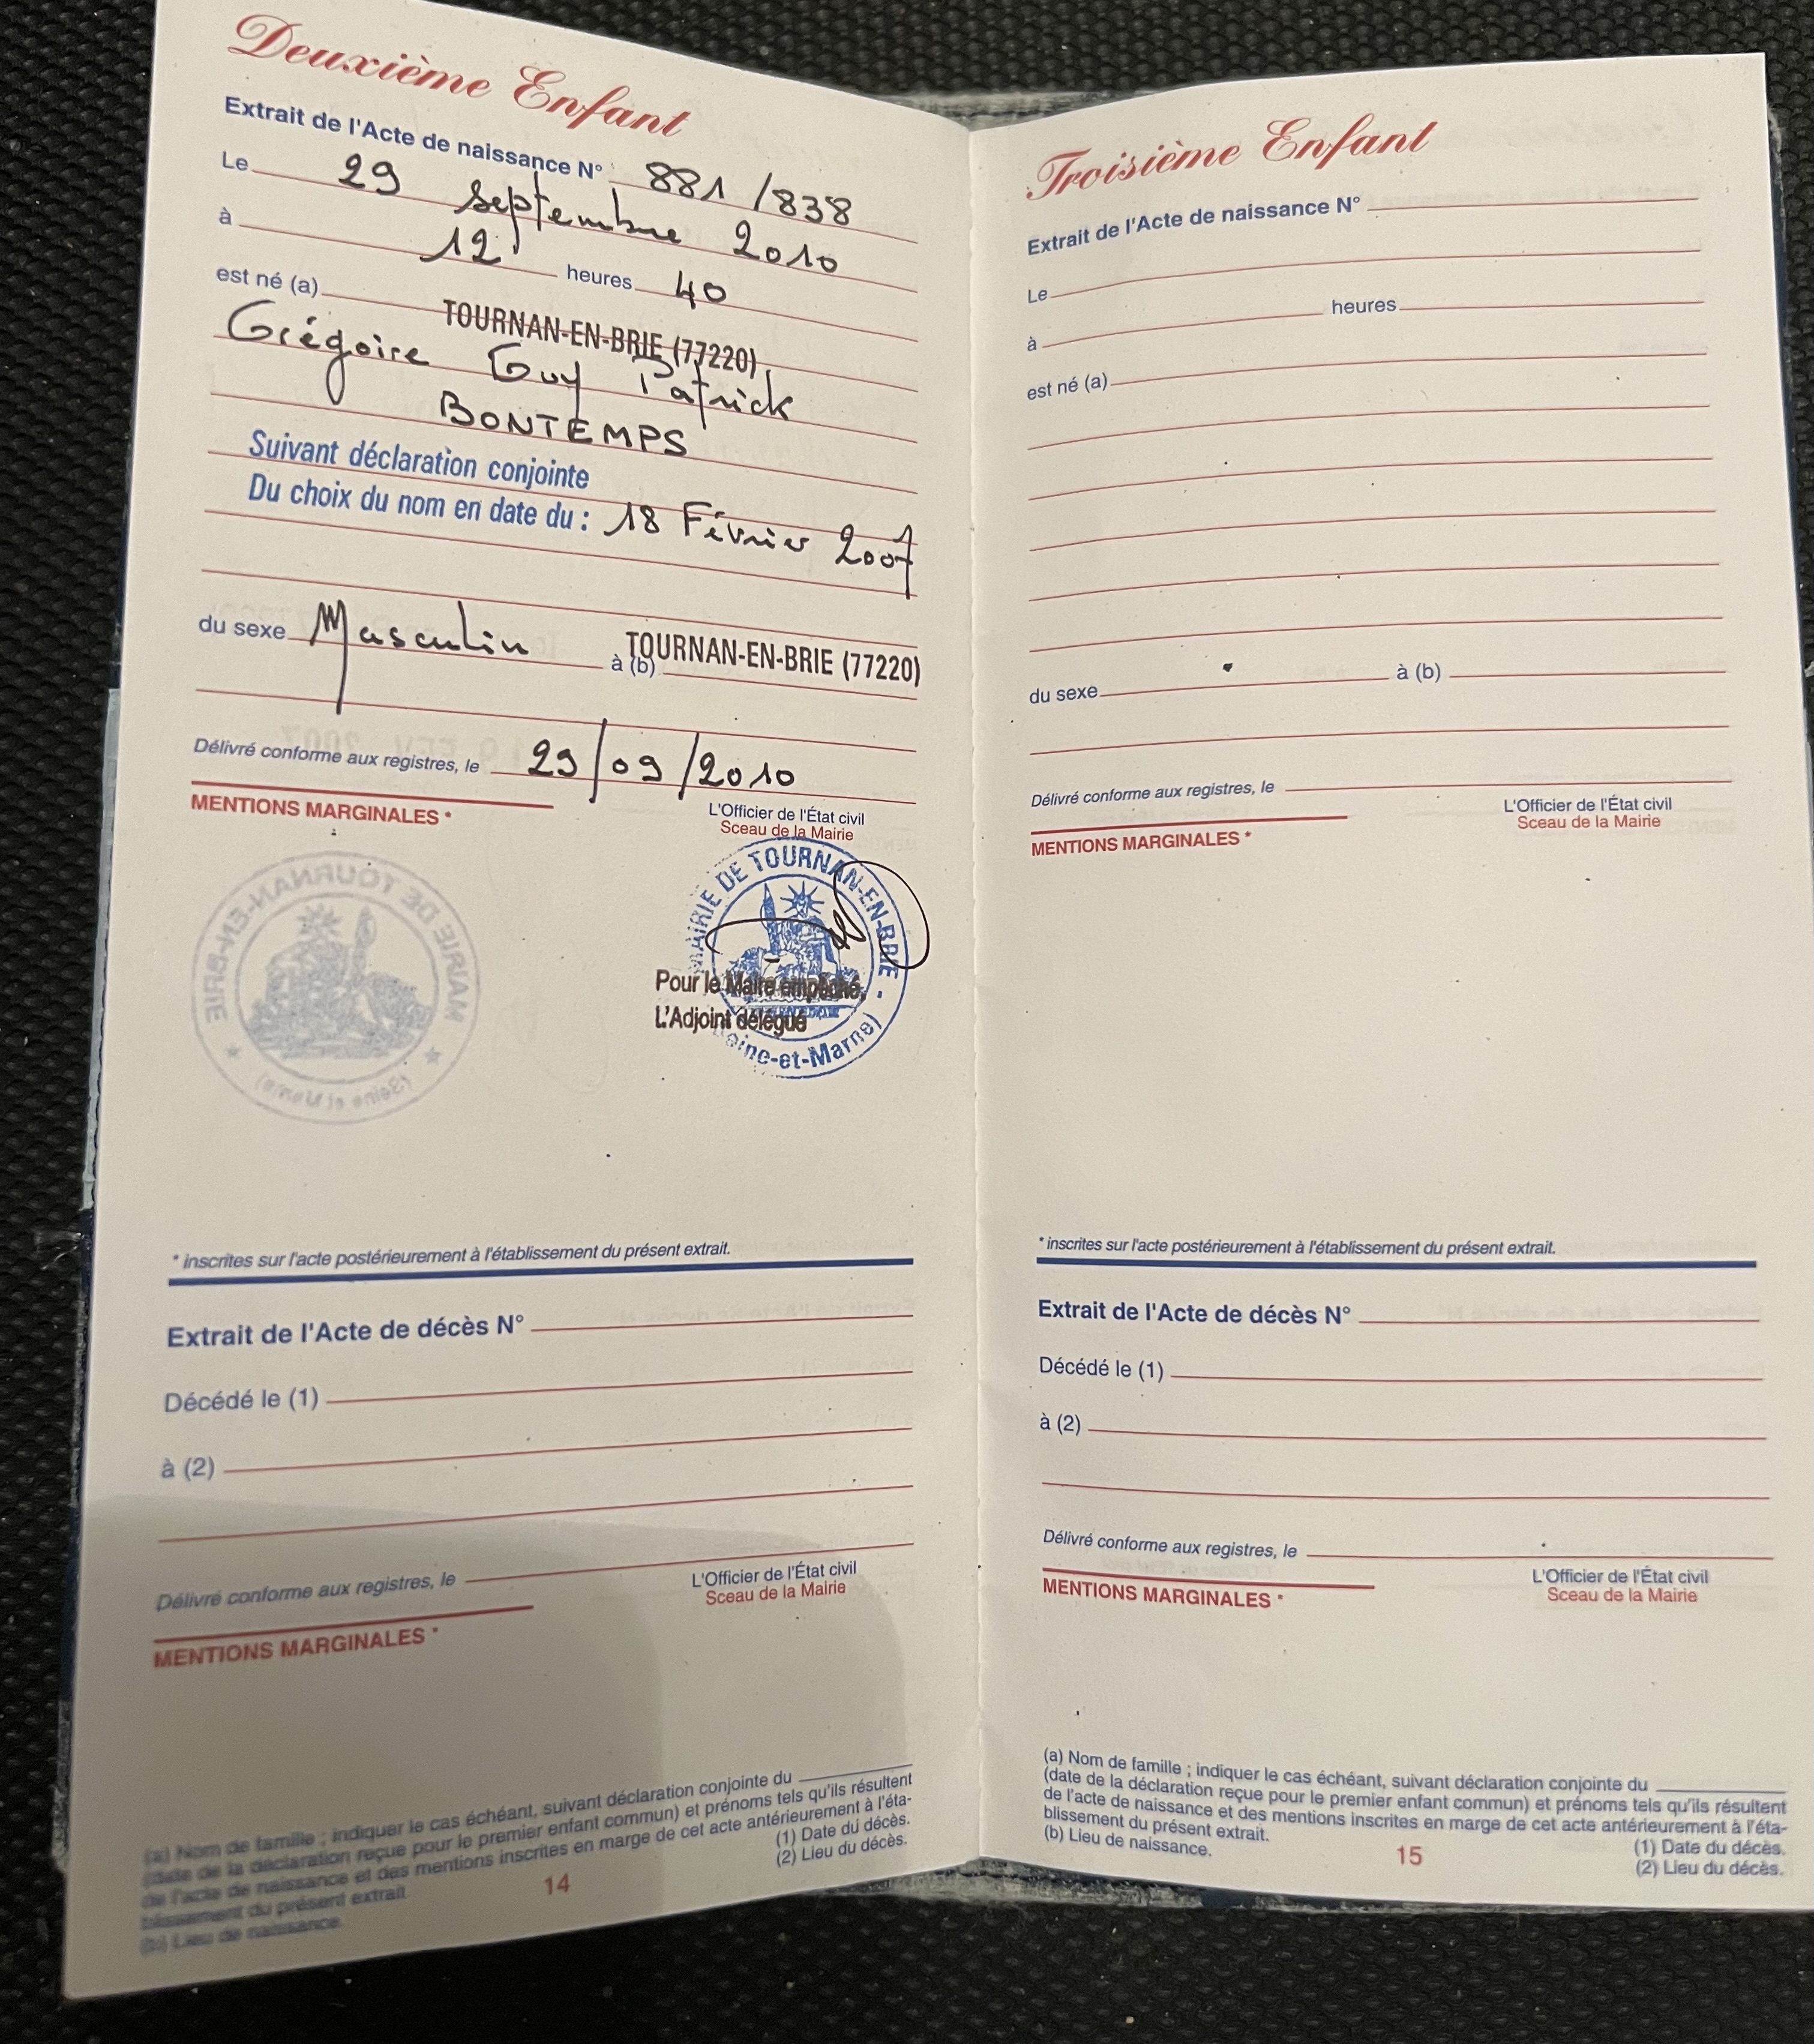 Deuxième Enfant
Extrait de l'Acte de naissance N° 881/838
Le 29 septembre 2010
à 12 heures 40
est né (a) TOURNAN-EN-BRIE (77220)
Grégoire Guy Patrick
BONTEMPS
Suivant déclaration conjointe
Du choix du nom en date du : 18 Février 2007
du sexe Masculin à (b) TOURNAN-EN-BRIE (77220)
Délivré conforme aux registres, le 29/09/2010
MENTIONS MARGINALES *
L'Officier de l'État civil
Sceau de la Mairie
MAIRIE DE TOURNAN-EN-BRIE
Pour le Maire empêché,
L'Adjoint délégué
(Seine-et-Marne)
MAIRIE DE TOURNAN-EN-BRIE
(Seine et Marne)
* inscrites sur l'acte postérieurement à l'établissement du présent extrait.
Extrait de l'Acte de décès N°
Décédé le (1)
à (2)
Délivré conforme aux registres, le
L'Officier de l'État civil
Sceau de la Mairie
MENTIONS MARGINALES *
(a) Nom de famille ; indiquer le cas échéant, suivant déclaration conjointe du
(date de la déclaration reçue pour le premier enfant commun) et prénoms tels qu'ils résultent
de l'acte de naissance et des mentions inscrites en marge de cet acte antérieurement à l'éta-
blissement du présent extrait.
(b) Lieu de naissance.
(1) Date du décès.
(2) Lieu du décès.
14
Troisième Enfant
Extrait de l'Acte de naissance N°
Le
à heures
est né (a)
du sexe à (b)
Délivré conforme aux registres, le
L'Officier de l'État civil
Sceau de la Mairie
MENTIONS MARGINALES *
* inscrites sur l'acte postérieurement à l'établissement du présent extrait.
Extrait de l'Acte de décès N°
Décédé le (1)
à (2)
Délivré conforme aux registres, le
L'Officier de l'État civil
Sceau de la Mairie
MENTIONS MARGINALES *
(a) Nom de famille ; indiquer le cas échéant, suivant déclaration conjointe du
(date de la déclaration reçue pour le premier enfant commun) et prénoms tels qu'ils résultent
de l'acte de naissance et des mentions inscrites en marge de cet acte antérieurement à l'éta-
blissement du présent extrait.
(b) Lieu de naissance.
(1) Date du décès.
(2) Lieu du décès.
15